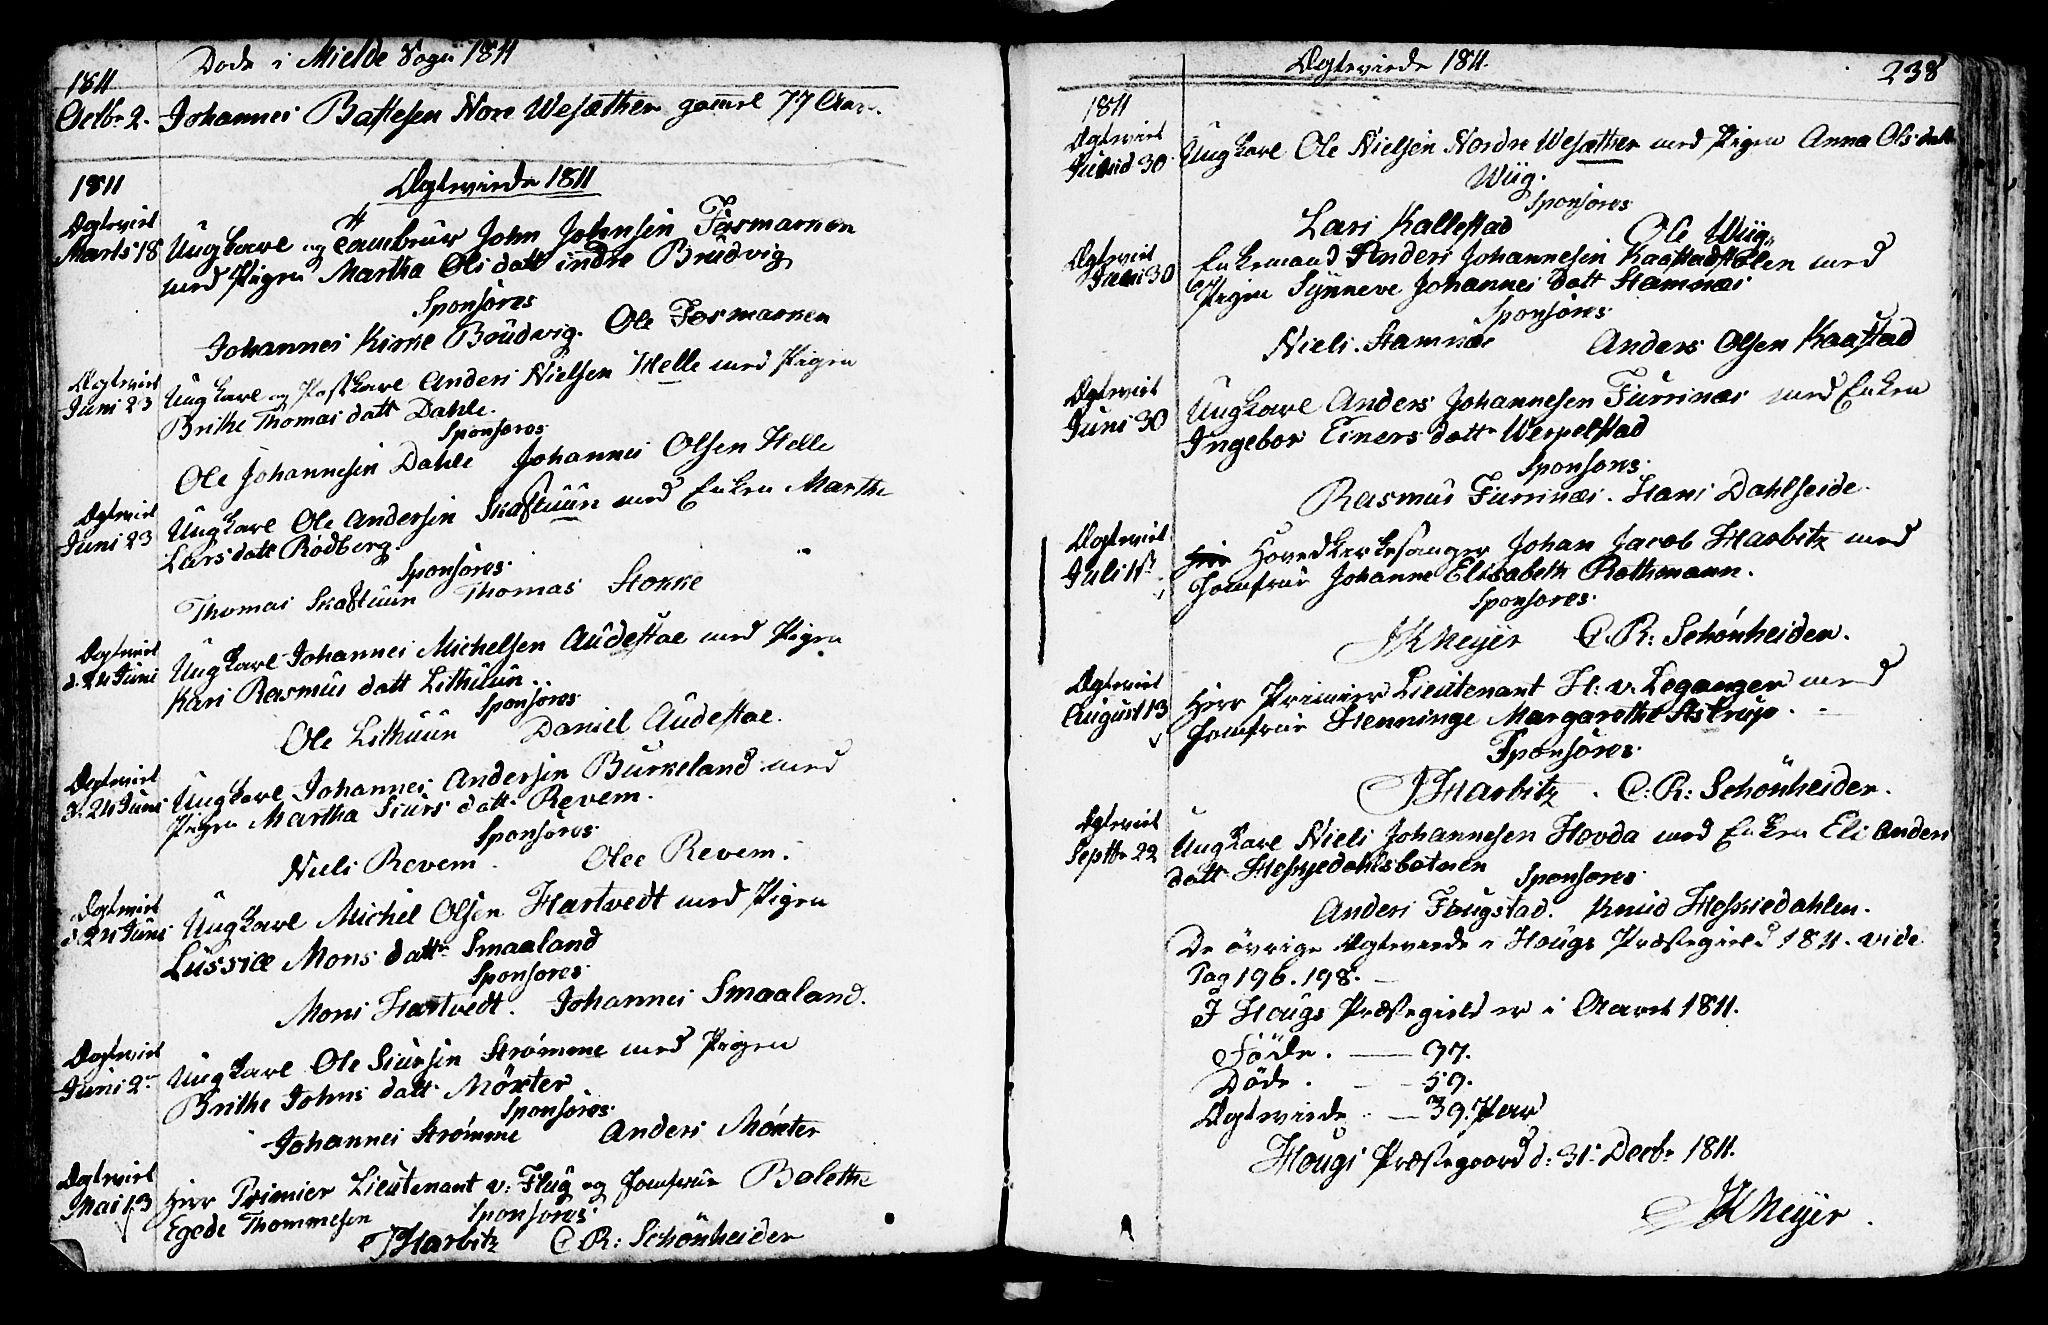 Døde i Mielde Sogn 1811
1811
Octbr 2. Johannes Baltesen Nore Wesæther gaml 77 Aar.
1811
Ægteviede 1811
Ægteviet Marts 18 Ungkarl og Tambour John Johnsen Fosmarken
med Pigen Martha Ols datt indre Brudvig
Sponsores
Johannes Kirke Brudvig. Ole Fosmarken
Ægteviet Juni 23 Ungkarl og Postkarl Anders Nielsen Helle med Pigen
Brithe Thomas datt Dahle.
Sponsores
Ole Johannesen Dahle Johannes Olsen Helle
Ægteviet Juni 23 Ungkarl Ole Andersen Skaftuun med Enken Marthe
Lars datt Rødberg.
Sponsores
Thomas Skaftuun Thomas Stokke
Ægteviet d. 24 Juni Ungkarl Johannes Michelsen Audestae med Pigen
Kari Rasmus datt Lithuun.
Sponsores
Ole Lithuun Daniel Audestae.
Ægteviet d. 24 Juni Ungkarl Johannes Andersen Burkeland med
Pigen Martha Siurs datt Revem.
Sponsores
Niels Revem. Olee Revem.
Ægteviet d 24 Juni Ungkarl Michel Olsen Hartvedt med Pigen
Lussice Mons datt Smaaland
Sponsores
Mons Hartvedt. Johannes Smaaland.
Ægteviet Juni 2 Ungkarl Ole Siursen Strømme med Pigen
Brithe Johns datt Möxter
Sponsores
Johannes Strømme Anders Möxter
Ægteviet Mai 13 Herr Primier Lieutenant v: Flug og Jomfrue Bolethe
Egede Thommesen Sponsores
JHarbitz C. R: Schönheider
Ægteviede 1811.
238
1811
Ægteviet Juni d 30 Ungkarl Ole Nielsen Nordre Wesæther med Pigen Anna Ols datt
Wiig.
Sponsores
Lars Kallestad Ole Wiig
Ægteviet Juni 30 Enkemand Anders Johannesen Kaastadstølen med
Pigen Synneve Johannes datt Stamnæs
Sponsores
Niels Stamnæs Anders Olsen Kaastad
Ægteviet Juni 30 Ungkarl Anders Johannesen Furrinæs med Enken
Ingebor Einers datt Werpelstad
Sponsores
Rasmus Furrinæs. Hans Dahlseide.
Ægteviet Juli Herr Hovedkirkesanger Johan Jacob Harbitz med
Jomfrue Johanne Elisabeth Rothmann.
Sponsores
JKMeyer C. R: Schönheider.
Ægteviet August 13 Herr Primier Lieutenant H: v. Leganger med
Jomfrue Henninge Margarethe Astrup.
Sponsores
JHarbitz. C: R: Schönheider.
Ægteviet Septbr 22 Ungkarl Niels Johannesen Hovda med Enken Eli Anders
datt Hesjedahlsbotnen Sponsores
Anders Fougstad. Knud Hesjedahlen.
De övrige Ægteviede i Hougs Præstegield 1811. vide
Pag 196. 198.
I Hougs Præstegield er i Aaret 1811.
Födde. — 97.
Döde. — 59.
Ægteviede. — 39. Par
Hougs Præstegaard d: 31 Decbr 1811.
JKMeyer.